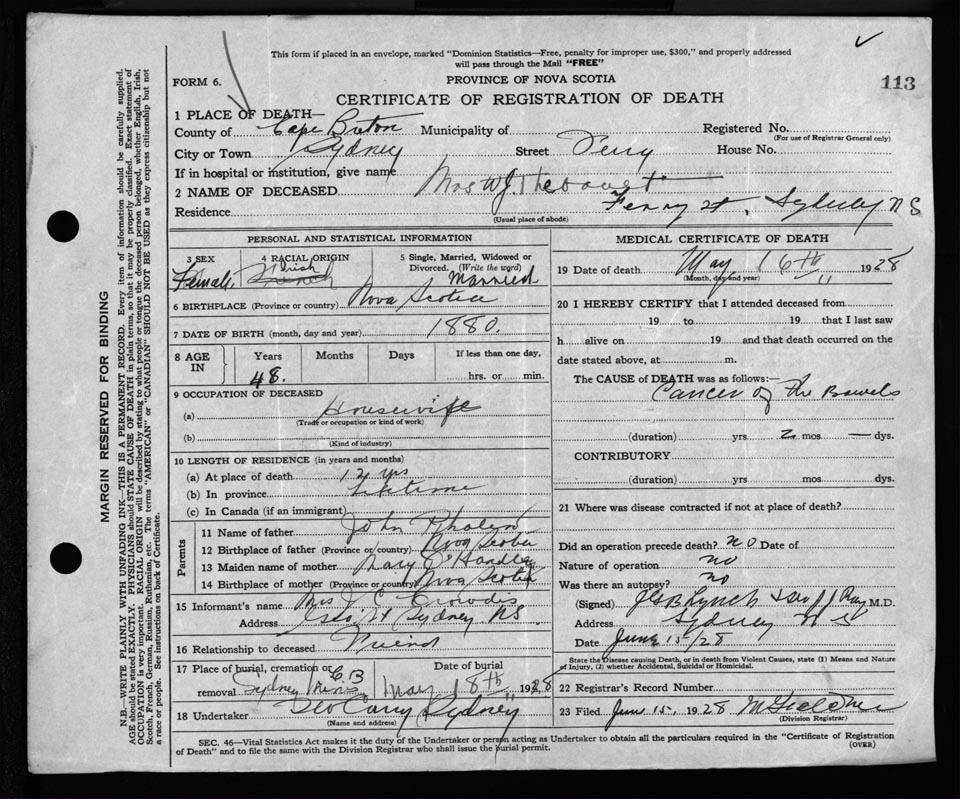 This form if placed in an envelope, marked "Dominion Statistics—Free, penalty for improper use, $300," and properly addressed
will pass through the Mail "FREE"
FORM 6.
PROVINCE OF NOVA SCOTIA
113
CERTIFICATE OF REGISTRATION OF DEATH
1 PLACE OF DEATH—
County of Cape Breton Municipality of Registered No.
(For use of Registrar General only)
City or Town Sydney Street Ferry House No.
If in hospital or institution, give name
2 NAME OF DECEASED Mrs W.J.
Residence Ferry st, Sydney N S
(Usual place of abode)
PERSONAL AND STATISTICAL INFORMATION
3 SEX 4 RACIAL ORIGIN 5 Single, Married, Widowed or
Divorced. (Write the word)
Female Irish Married
6 BIRTHPLACE (Province or country) Nova Scotia
7 DATE OF BIRTH (month, day and year) 1880.
8 AGE IN Years Months Days If less than one day,
48. hrs. or min.
9 OCCUPATION OF DECEASED
(a) Housewife
(Trade or occupation or kind of work)
(b)
(Kind of industry)
10 LENGTH OF RESIDENCE (in years and months)
(a) At place of death 12 yrs
(b) In province Lifetime
(c) In Canada (if an immigrant)
Parents
11 Name of father John Phalen
12 Birthplace of father (Province or country) Nova Scotia
13 Maiden name of mother Mary Handley
14 Birthplace of mother (Province or country) Nova Scotia
15 Informant's name Mrs J C
Address St Sydney NS.
16 Relationship to deceased Friend
17 Place of burial, cremation or Date of burial
removal Sydney Mines C.B May 18th 1928
18 Undertaker Sydney
(Name and address)
MEDICAL CERTIFICATE OF DEATH
19 Date of death May 16th 1928
(Month, day and year)
20 I HEREBY CERTIFY that I attended deceased from
19 to 19 that I last saw
h alive on 19 and that death occurred on the
date stated above, at m.
The CAUSE of DEATH was as follows:—
Cancer of the Bowels
(duration) yrs 2 mos — dys.
CONTRIBUTORY
(duration) yrs mos dys.
21 Where was disease contracted if not at place of death?
Did an operation precede death? no Date of
Nature of operation no
Was there an autopsy? no
(Signed) Lynch M.D.
Address Sydney N S
Date June 15/28
State the Disease causing Death, or in death from Violent Causes, state (1) Means and Nature
of Injury, (2) whether Accidental, Suicidal or Homicidal.
22 Registrar's Record Number
23 Filed June 15, 1928
(Division Registrar)
SEC. 46—Vital Statistics Act makes it the duty of the Undertaker or person acting as Undertaker to obtain all the particulars required in the "Certificate of Registration
of Death" and to file the same with the Division Registrar who shall issue the burial permit.
(OVER)
MARGIN RESERVED FOR BINDING
N.B.—WRITE PLAINLY WITH UNFADING INK—THIS IS A PERMANENT RECORD. Every item of information should be carefully supplied.
AGE should be stated EXACTLY. PHYSICIANS should STATE CAUSE OF DEATH in plain terms, so that it may be properly classified. Exact statement of
OCCUPATION is very important. RACIAL ORIGIN will be described by stating to what people or tongue the deceased person belonged, whether English, Irish,
Scotch, French, German, Russian, Ruthenian, etc. The terms "AMERICAN" or "CANADIAN" SHOULD NOT BE USED as they express citizenship but not
a race or people. See instructions on back of Certificate.